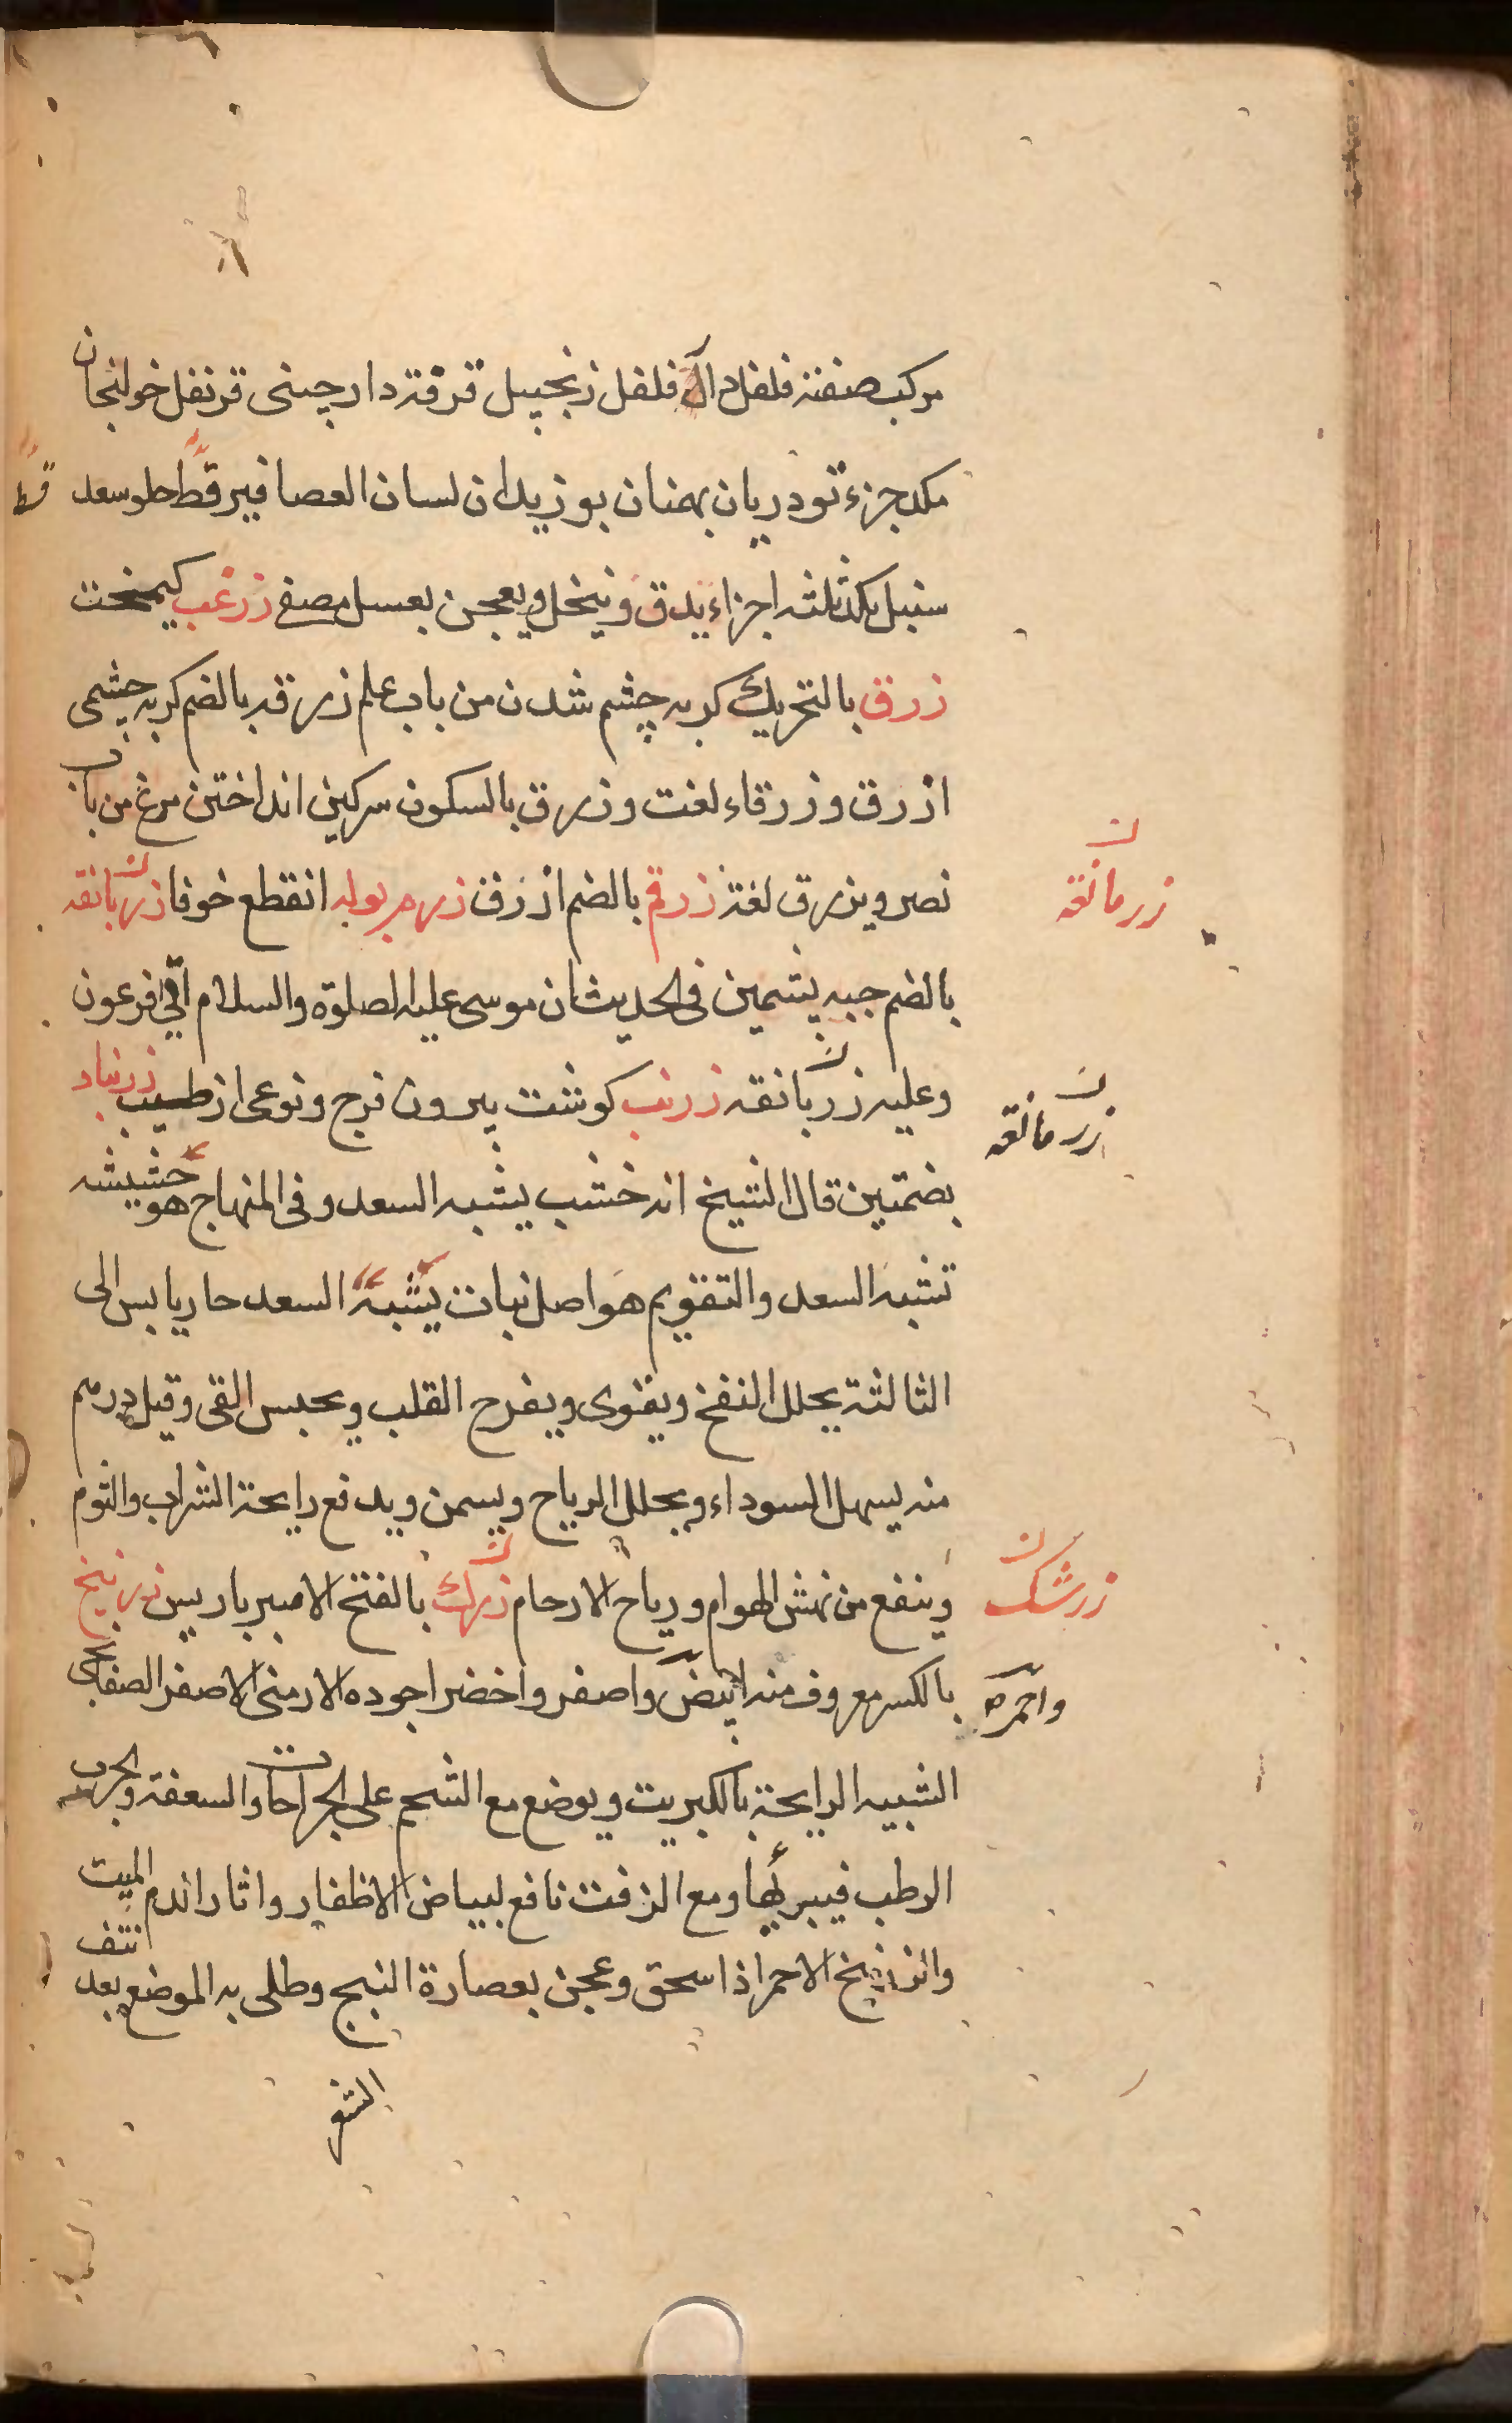 مركب صنفته فلفل دار فلفل زنجبيل قرفة دارچينى قرنفل خولنجان
مكد جزء تودريان بهمنان بوزيدان لسان العصافير قط حلو سعد
سنبل مكد ثلثه اجزاء يدق وينخل ويعجن بعسل مصفى زرغب كيمخت
زرق بالتحريك كربه چشم شدن من باب علم زرقه بالضم كربه چشمى
ازرق وزرقاء لغت وزرق بالسكون سركين انداختن مرغ من باب
نصر ويزرق لغة زرقم بالضم ازرق زرم بوله انقطع خوفا زربانقه
بالضم جبه پشمين فى الحديث ان موسى عليه الصلوة والسلام اتى فرعون
وعليه زربانقه زرنب كوشت بيرون فرج ونوعى از طيب زرنباد
بضمتين قال الشيخ انه خشب يشبه السعد وفى المنهاج هو حشيشه
تشبه السعد والتقويم هو اصل نبات يشبه السعد حار يابس الى
الثالثة يحلل النفخ ويقوى ويفرح القلب ويحبس القى وقيل درهم
منه يسهل السوداء ويحلل الرياح ويسمن ويدفع رايحة الشراب والثوم
وينفع من نهش الهوام ورياح الارحام زرك بالفتح الامبرباريس زرنيخ
بالكسر معروف منه ابيض واصفر واخضر اجوده الارمنى الاصفر الصفايحى
الشبيه الرايحة بالكبريت ويوضع مع الشحم على الجراحات والسعفة والجرب
الرطب فيبرئها ومع الزفت نافع لبياض الاظفار واثار الدم الميت
والزرنيخ الاحمر اذا سحق وعجن بعصارة البنج وطلى به الموضع بعد نتف
الشعر
زرمانقه
زرمانقه
زرشك
واحمر صح